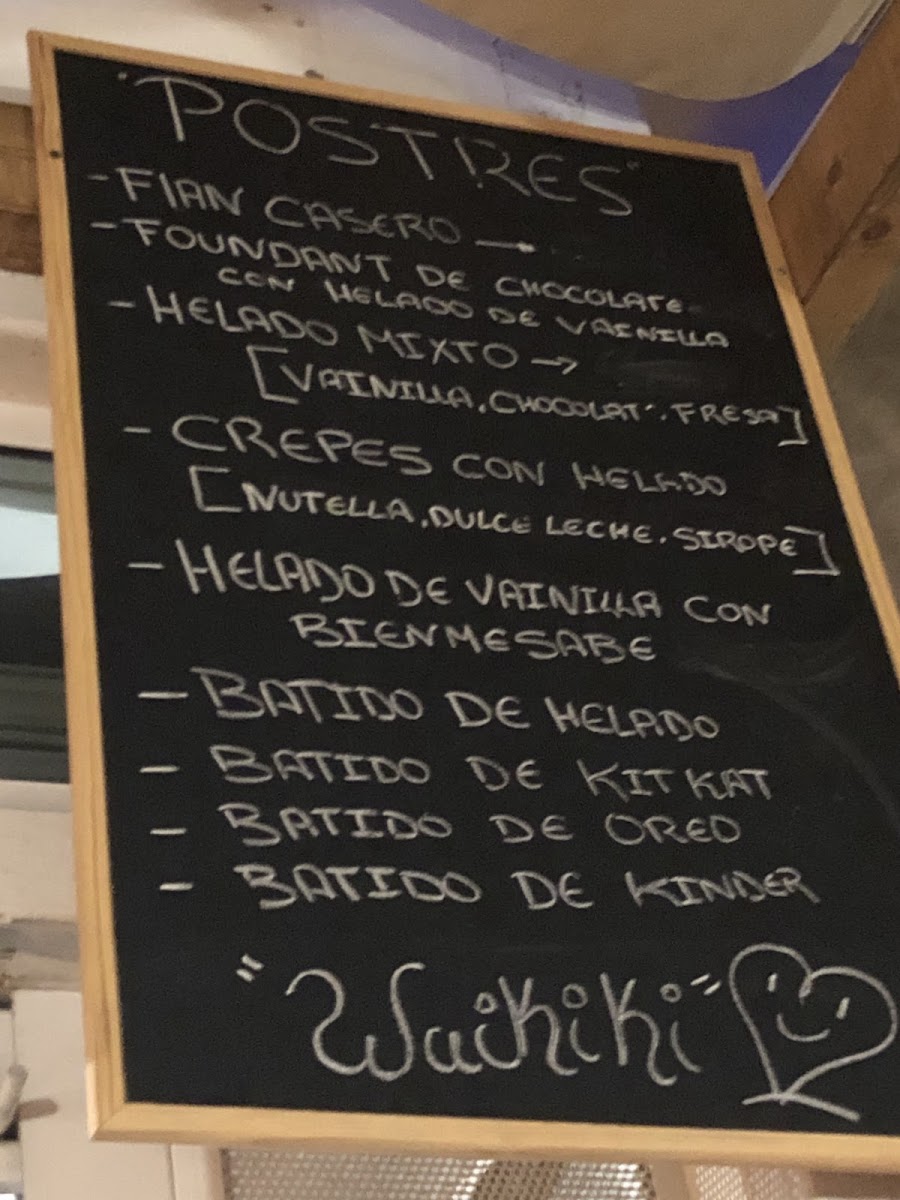 "POSTRES"
- FlAN CASERO →
- FOUNDANT DE CHOCOLATE
CON HELADO DE VAINILLA
- HELADO MIXTO →
[VAINILLA, CHOCOLAT^, FRESA]
- CREPES CON HELADO
[NUTELLA, DULCE LECHE, SIROPE]
- HELADO DE VAINILLA CON
BIENMESABE
- BATIDO DE HELADO
- BATIDO DE KIT KAT
- BATIDO DE OREO
- BATIDO DE KINDER
"Waikiki"